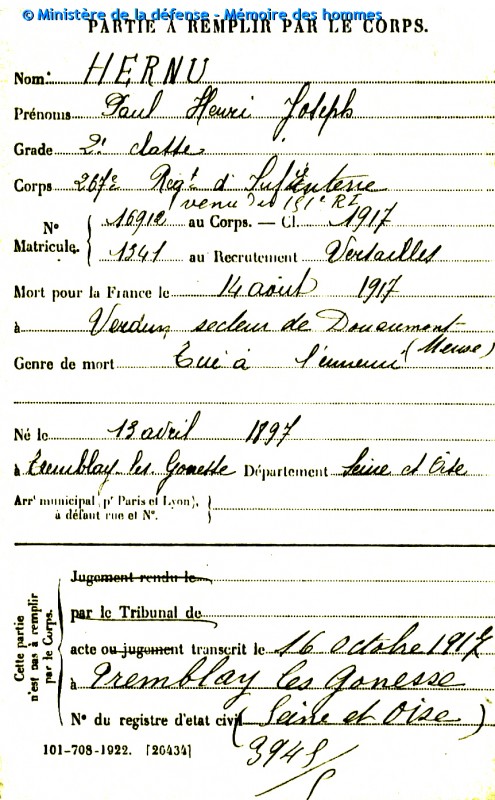 © Ministère de la défense - Mémoire des hommes
PARTIE À REMPLIR PAR LE CORPS.
Nom HERNU
Prénoms Paul Henri Joseph
Grade 2e classe
Corps 267e Régt d'Infanterie
(venu du 151e RI
N° Matricule. { 16912 au Corps. — Cl. 1917
1341 au Recrutement Versailles
Mort pour la France le 14 août 1917
à Verdun, secteur de Douaumont
(Meuse)
Genre de mort Tué à l'ennemi
Né le 13 avril 1897
à Tremblay les Gonesse Département Seine et Oise
Arrt municipal (pr Paris et Lyon),
à défaut rue et N°.
Cette partie n'est pas à remplir par le Corps.
Jugement rendu le
par le Tribunal de
acte ou jugement transcrit le 16 octobre 1917
à Tremblay les Gonesse
N° du registre d'état civil (Seine et Oise)
101-708-1922. [26434]